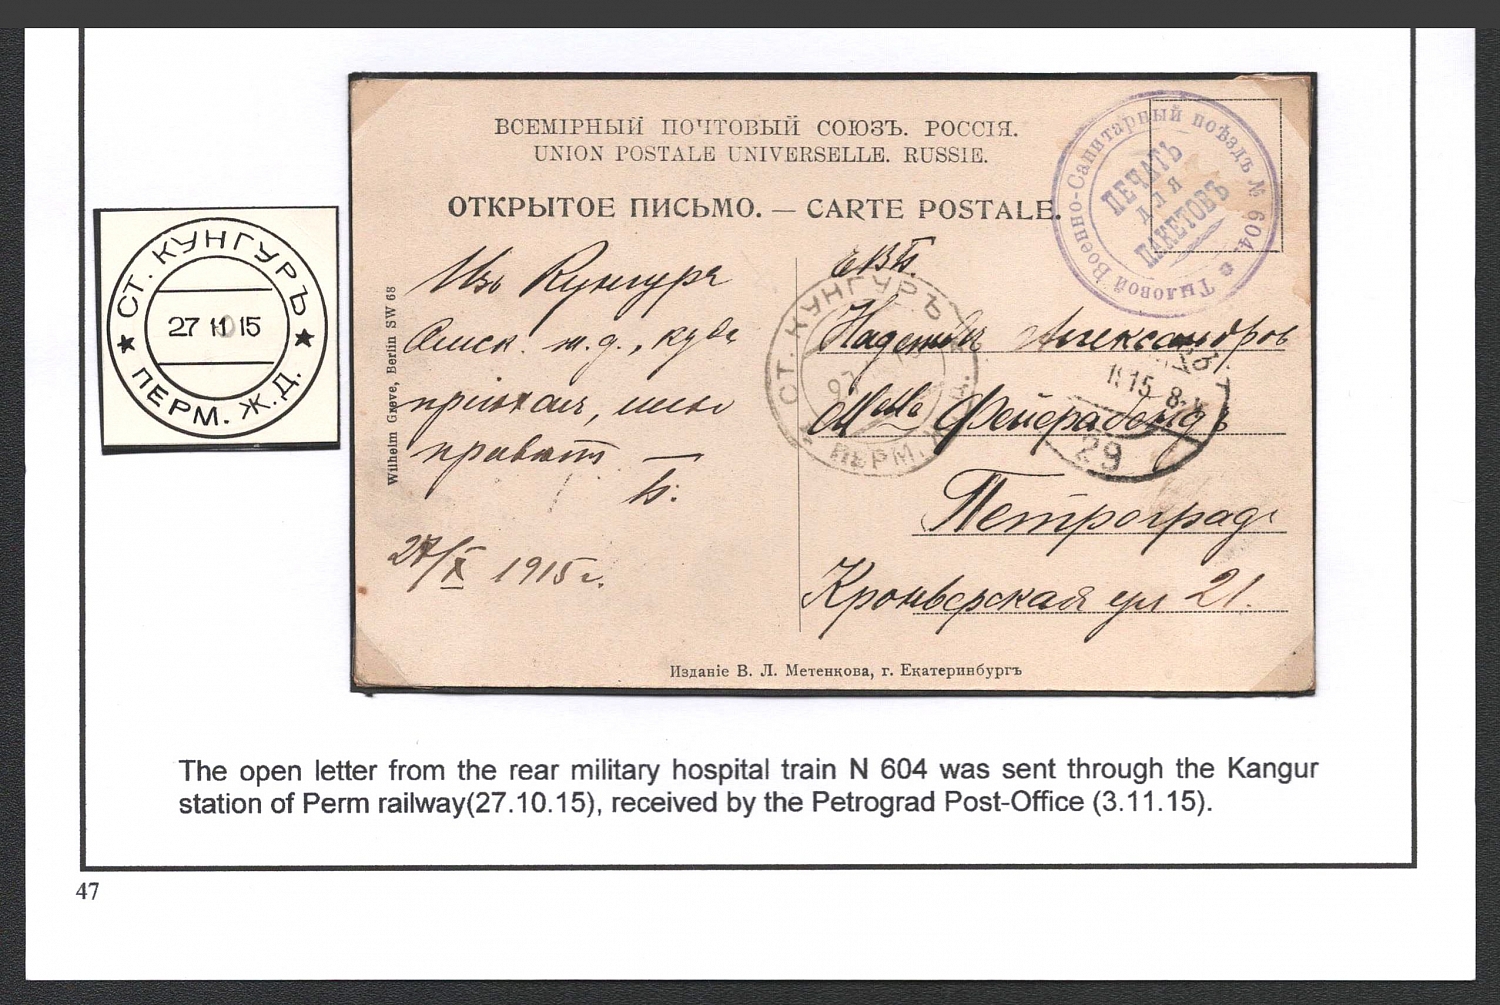 ВСЕМІРНЫЙ ПОЧТОВЫЙ СОЮЗЪ. РОССІЯ.
UNION POSTALE UNIVERSELLE. RUSSIE.
ОТКРЫТОЕ ПИСЬМО. — CARTE POSTALE.
Тыловой Военно-Санитарный поѣздъ № 604
ПЕЧАТЬ
для
ПАКЕТОВЪ
СТ. КУНГУРЪ
27 11 15
ПЕРМ. Ж.Д.
Wilhelm Greve, Berlin SW 68
Изъ Кунгура
ж.д., куда
27/X 1915 г.
ЕВБ.
СТ. КУНГУРЪ
27
ПЕРМ.
Mlle Фейерабендъ
Петроградъ
Кронверкская ул 21.
15. 8
29
Изданіе В. Л. Метенкова, г. Екатеринбургъ
The open letter from the rear military hospital train N 604 was sent through the Kangur
station of Perm railway(27.10.15), received by the Petrograd Post-Office (3.11.15).
47